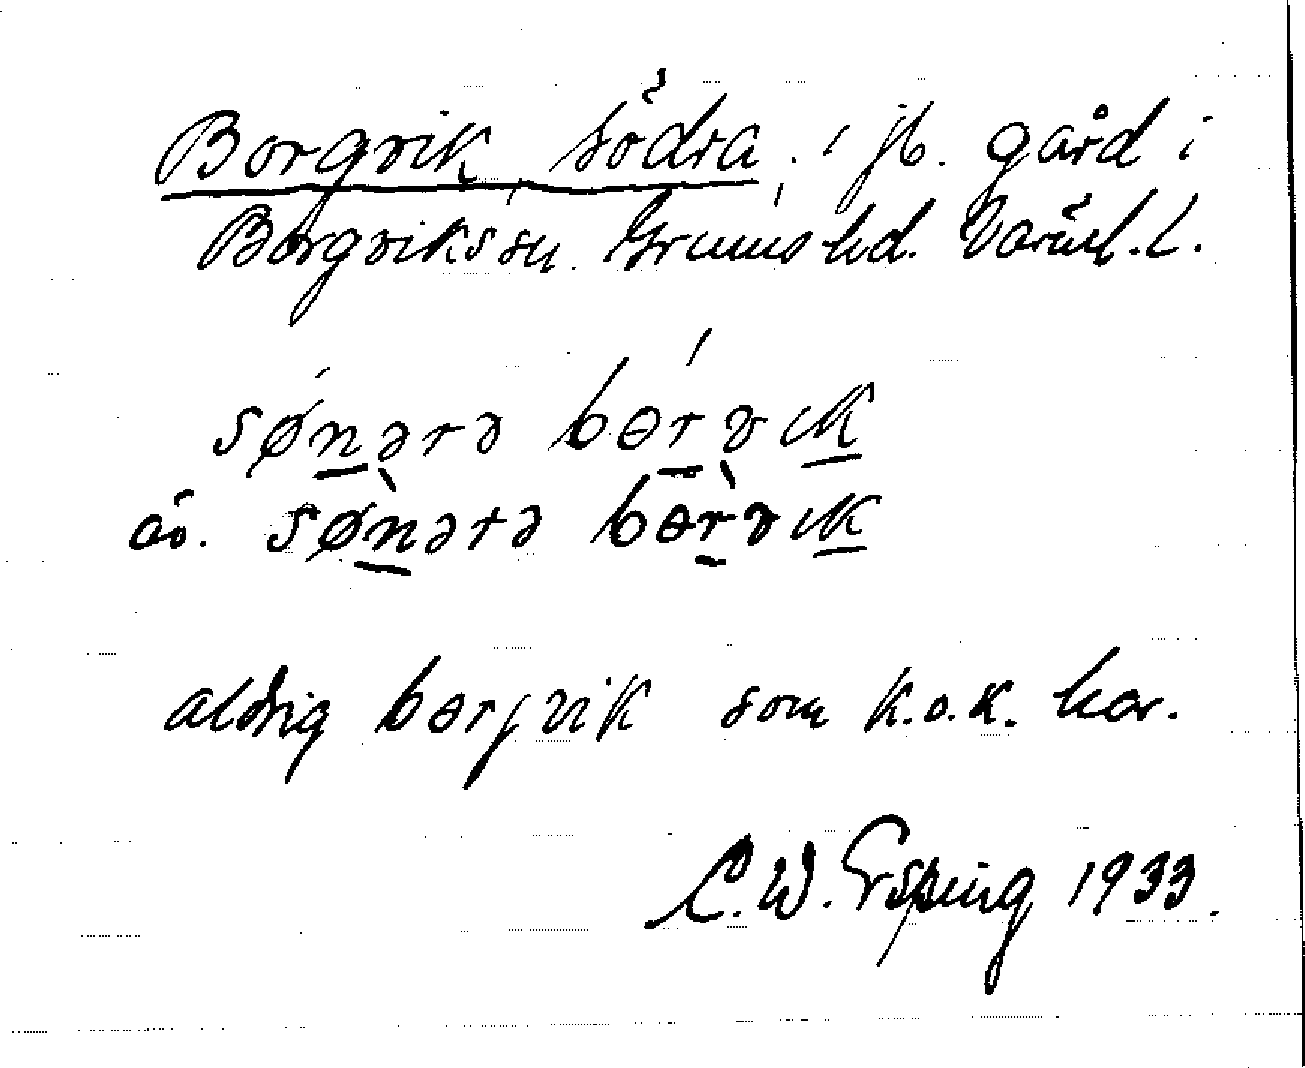 Borgvik, Södra. i jb. gård i
Borgviks sn. Grums hd. Värml. l.
sønərə bɵrvɪk
äv. sø̀nərə bɵr̀vɪk
aldrig bɵrjvik som k.o.k. har.
C. W. Esping 1933.